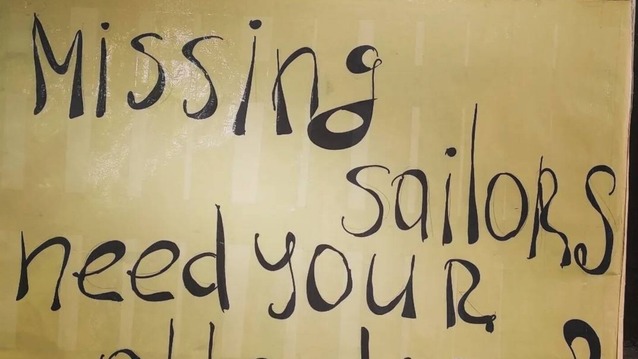 Missing
sailoRs
need youR